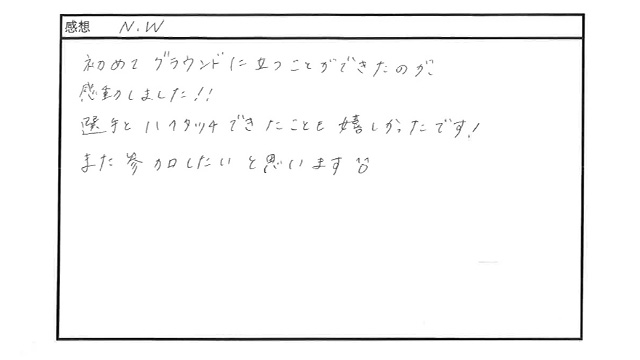 感想 N.W
初めてグラウンドに立つことができたのが、
感動しました!!
選手とハイタッチできたことも嬉しかったです!
また参加したいと思います